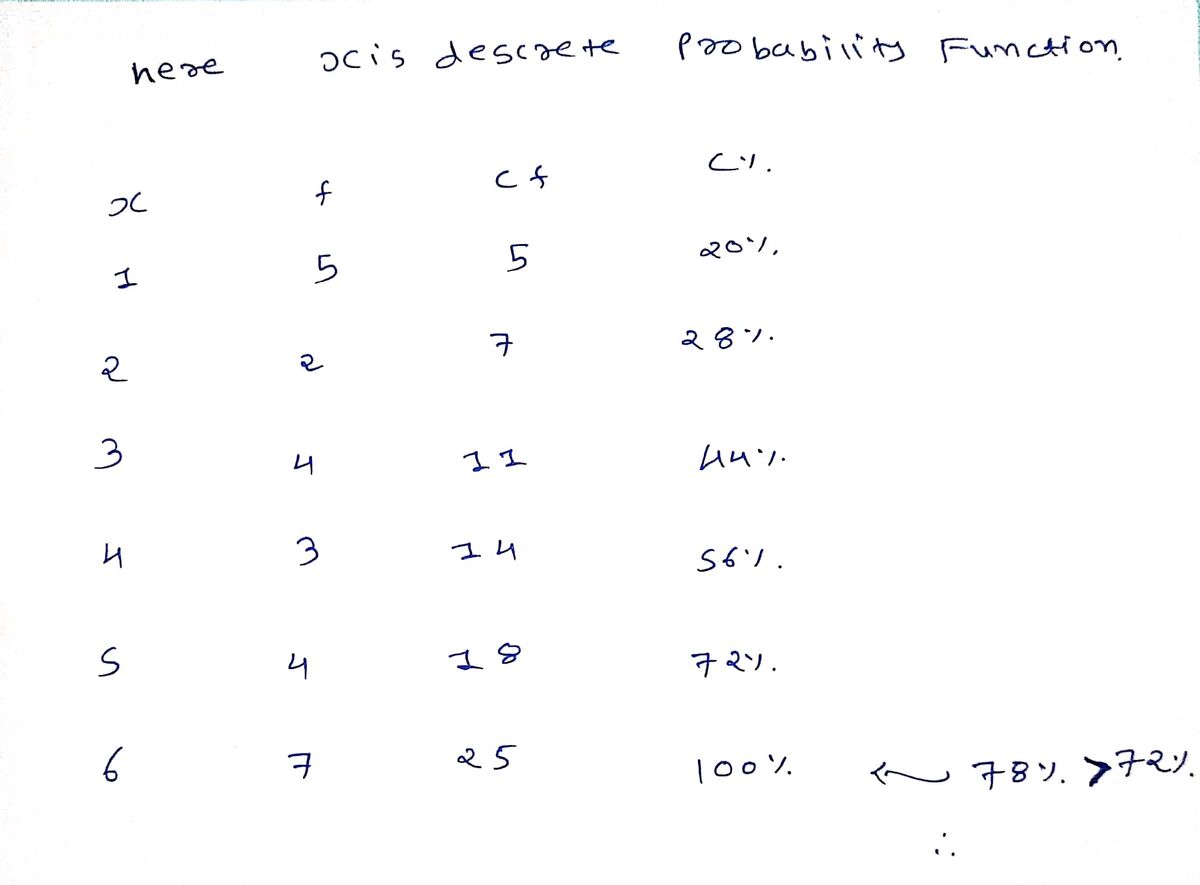 here x is descrete Probability Function.
x f cf c%.
1 5 5 20%.
2 2 7 28%.
3 4 11 44%.
4 3 14 56%.
5 4 18 72%.
6 7 25 100%. ← 78%. >72%.
∴